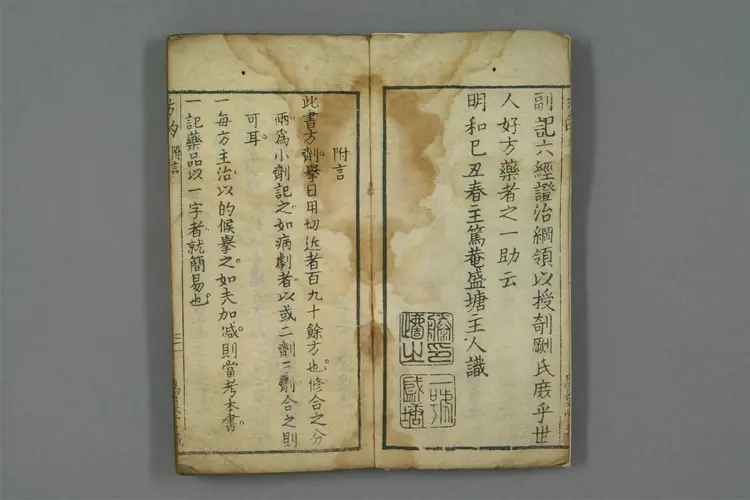 副記六經證治綱領以授剞劂氏庶乎世
人好方藥者之一助云
明和己丑春王篤菴盛塘主人識
附言
此書方劑擧日用切近者百九十餘方也修合之分
兩爲小劑記之如病劇者以或二劑一劑合之則
可耳
一每方主治以的候擧之如夫加减則當考本書
一記藥品以一字者就簡易也
方的 附言
三